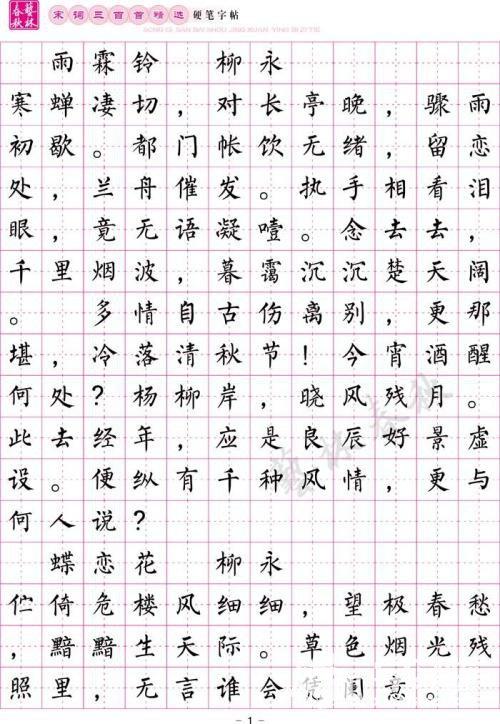 春秋 藝林 宋词三百首精选 硬笔字帖
SONG CI SAN BAI SHOU JING XUAN YING BI ZI TIE
雨霖铃 柳永
寒蝉凄切，对长亭晚，骤雨
初歇。都门帐饮无绪，留恋
处，兰舟催发。执手相看泪
眼，竟无语凝噎。念去去，
千里烟波，暮霭沉沉楚天阔
。 多情自古伤离别，更那
堪，冷落清秋节！今宵酒醒
何处？杨柳岸，晓风残月。
此去经年，应是良辰好景虚
设。便纵有千种风情，更与
何人说？
蝶恋花 柳永
伫倚危楼风细细，望极春愁
，黯黯生天际。草色烟光残
照里，无言谁会凭阑意。
藝林春秋
- 1 -